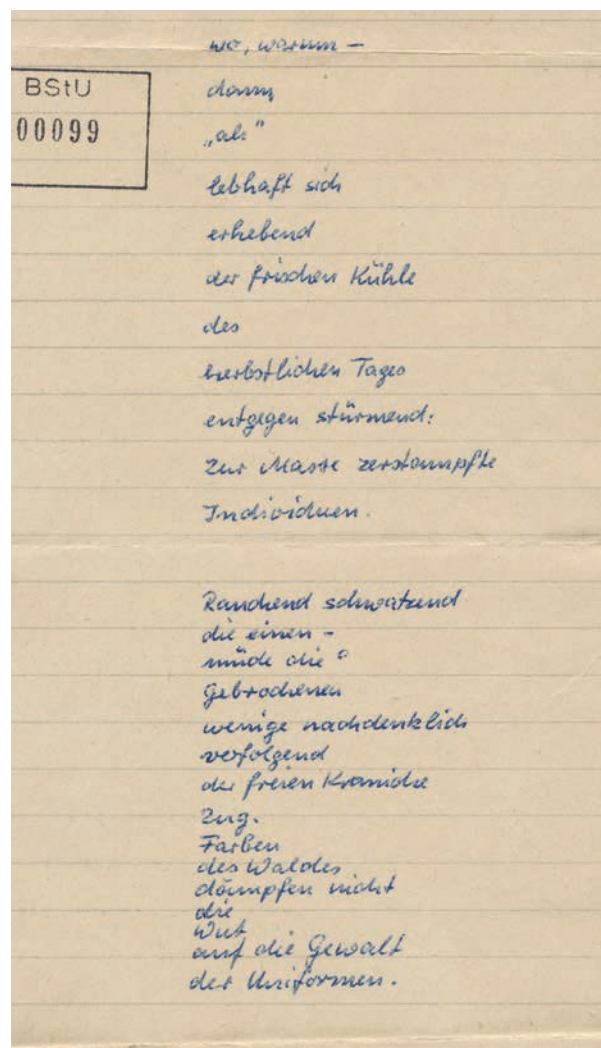 BStU
00099
wo, warum –
dann
„als"
lebhaft sich
erhebend
der frischen Kühle
des
herbstlichen Tages
entgegen stürmend:
Zur Masse zerstampfte
Individuen.
Rauchend schwatzend
die einen –
müde die
gebrochenen
wenige nachdenklich
verfolgend
der freien Kraniche
Zug.
Farben
des Waldes
dämpfen nicht
die
Wut
auf die Gewalt
der Uniformen.